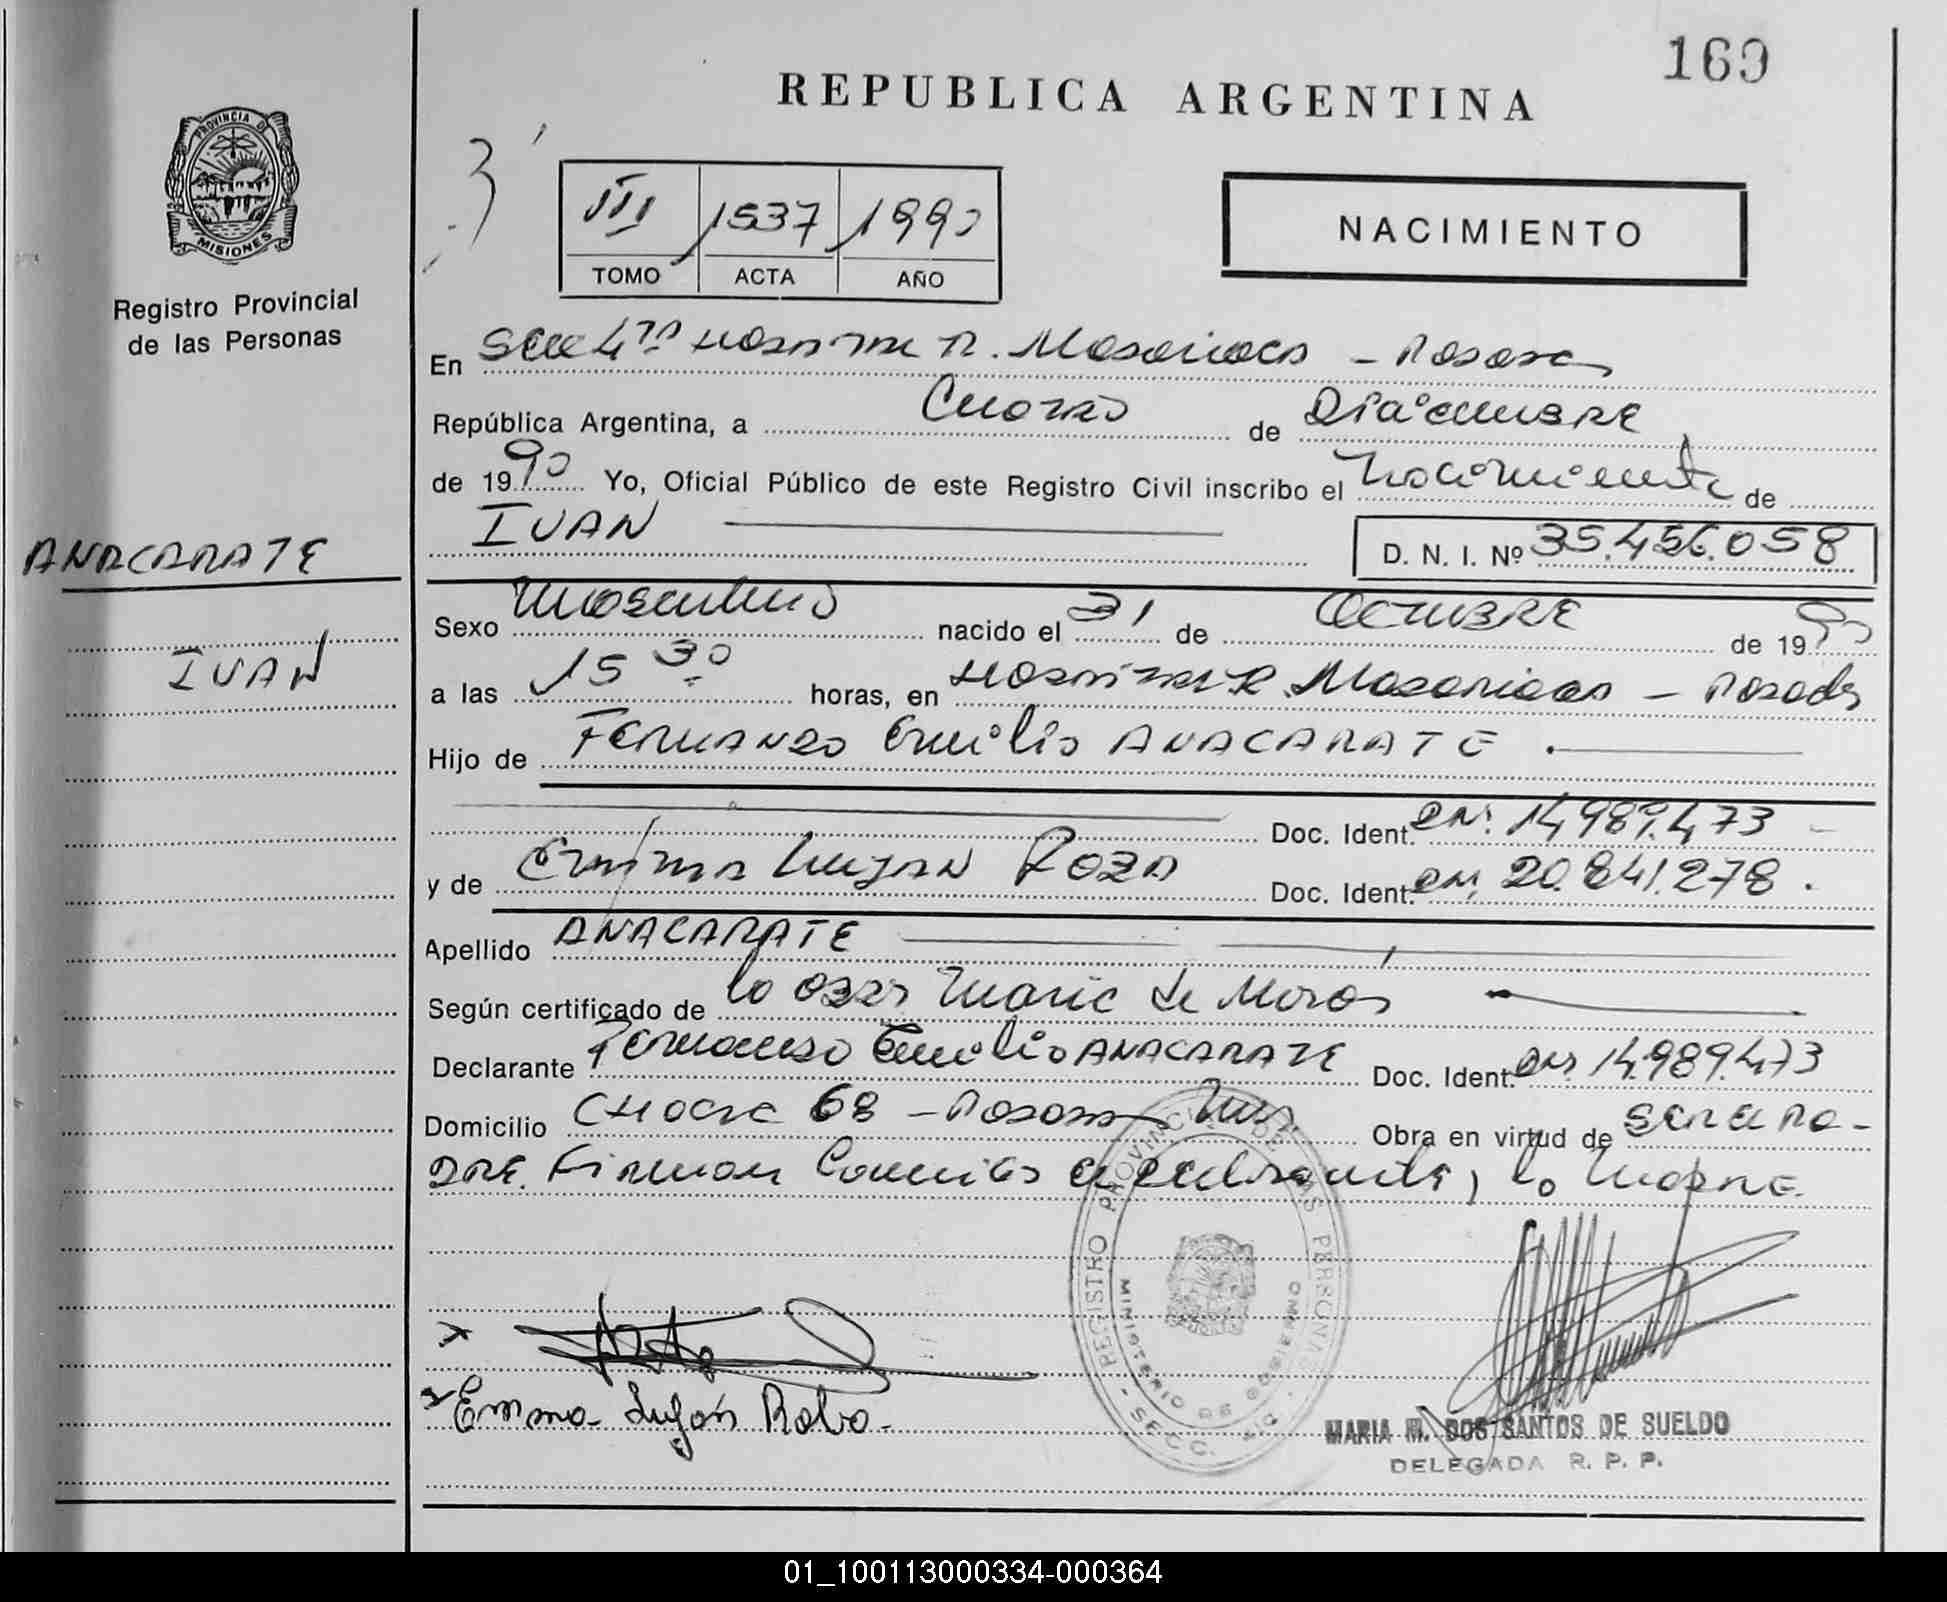 160
REPUBLICA ARGENTINA
PROVINCIA DE
MISIONES
Registro Provincial
de las Personas
III 1537 1990
TOMO ACTA AÑO
NACIMIENTO
En Secc 4ta Hospital R. Madariaga - Posadas
República Argentina, a Cuatro de Diciembre
de 1990 Yo, Oficial Público de este Registro Civil inscribo el Nacimiento de
IVAN D. N. I. Nº 35.456.058
ANACARATE
IVAN
Sexo Masculino nacido el 31 de OCTUBRE de 1990
a las 15 30 horas, en Hospital R. Madariaga - Posadas
Hijo de Fernando Emilio ANACARATE.
Doc. Ident. DNI. 14.989.473
y de Emma Lujan Roba Doc. Ident. DNI. 20.841.278.
Apellido ANACARATE
Según certificado de la Obst Maria de Moras
Declarante Fernando Emilio ANACARATE Doc. Ident. DNI. 14.989.473
Domicilio 68 - Posadas Mns. Obra en virtud de Ser el Pa-
dre. Firman Conmigo el declarante, la Madre.
REGISTRO PROVINCIAL DE LAS PERSONAS
MINISTERIO DE GOBIERNO
SECC.
Emma Luján Roba.
MARIA M. DOS SANTOS DE SUELDO
DELEGADA R. P. P.
01_100113000334-000364